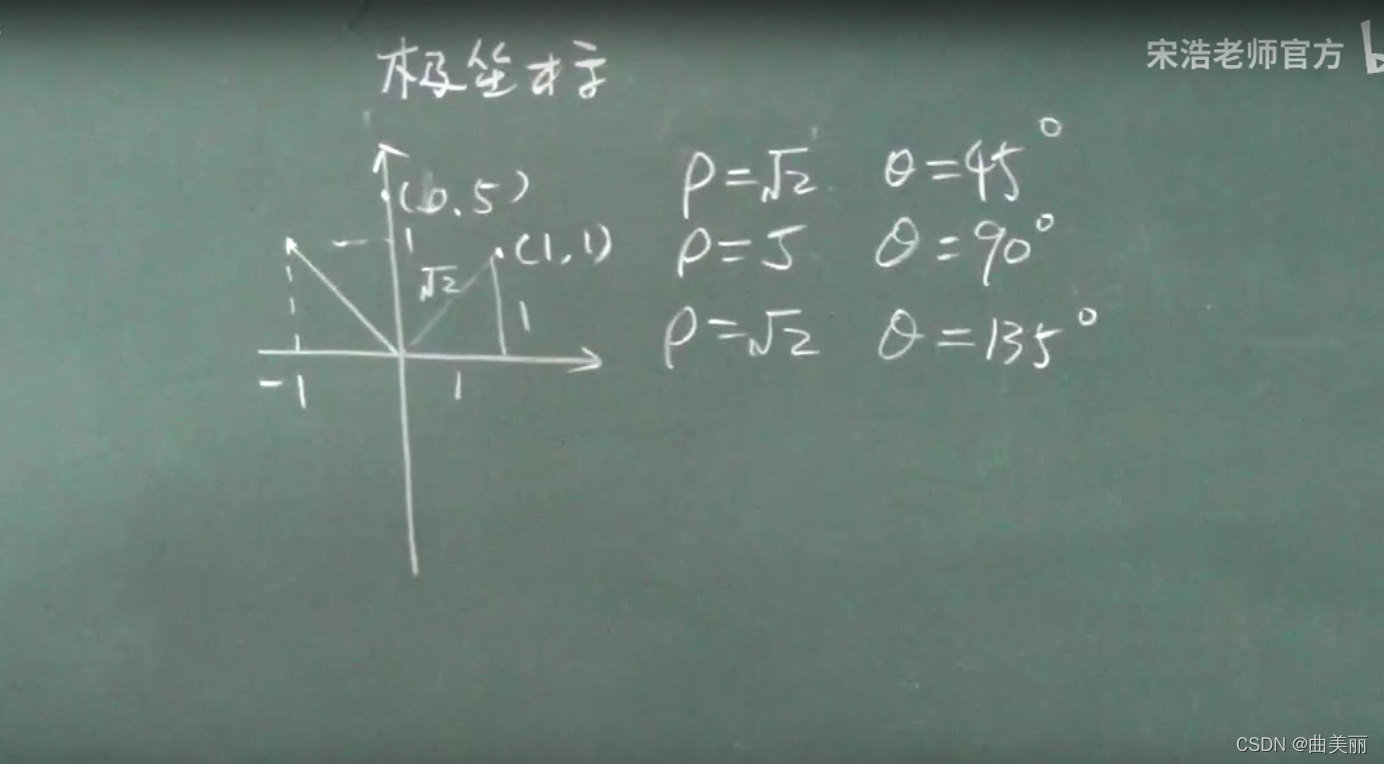 宋浩老师官方
极坐标
(0.5)
1
(1,1)
√2
1
-1
1
ρ=√2 θ=45°
ρ=5 θ=90°
ρ=√2 θ=135°
CSDN @曲美丽